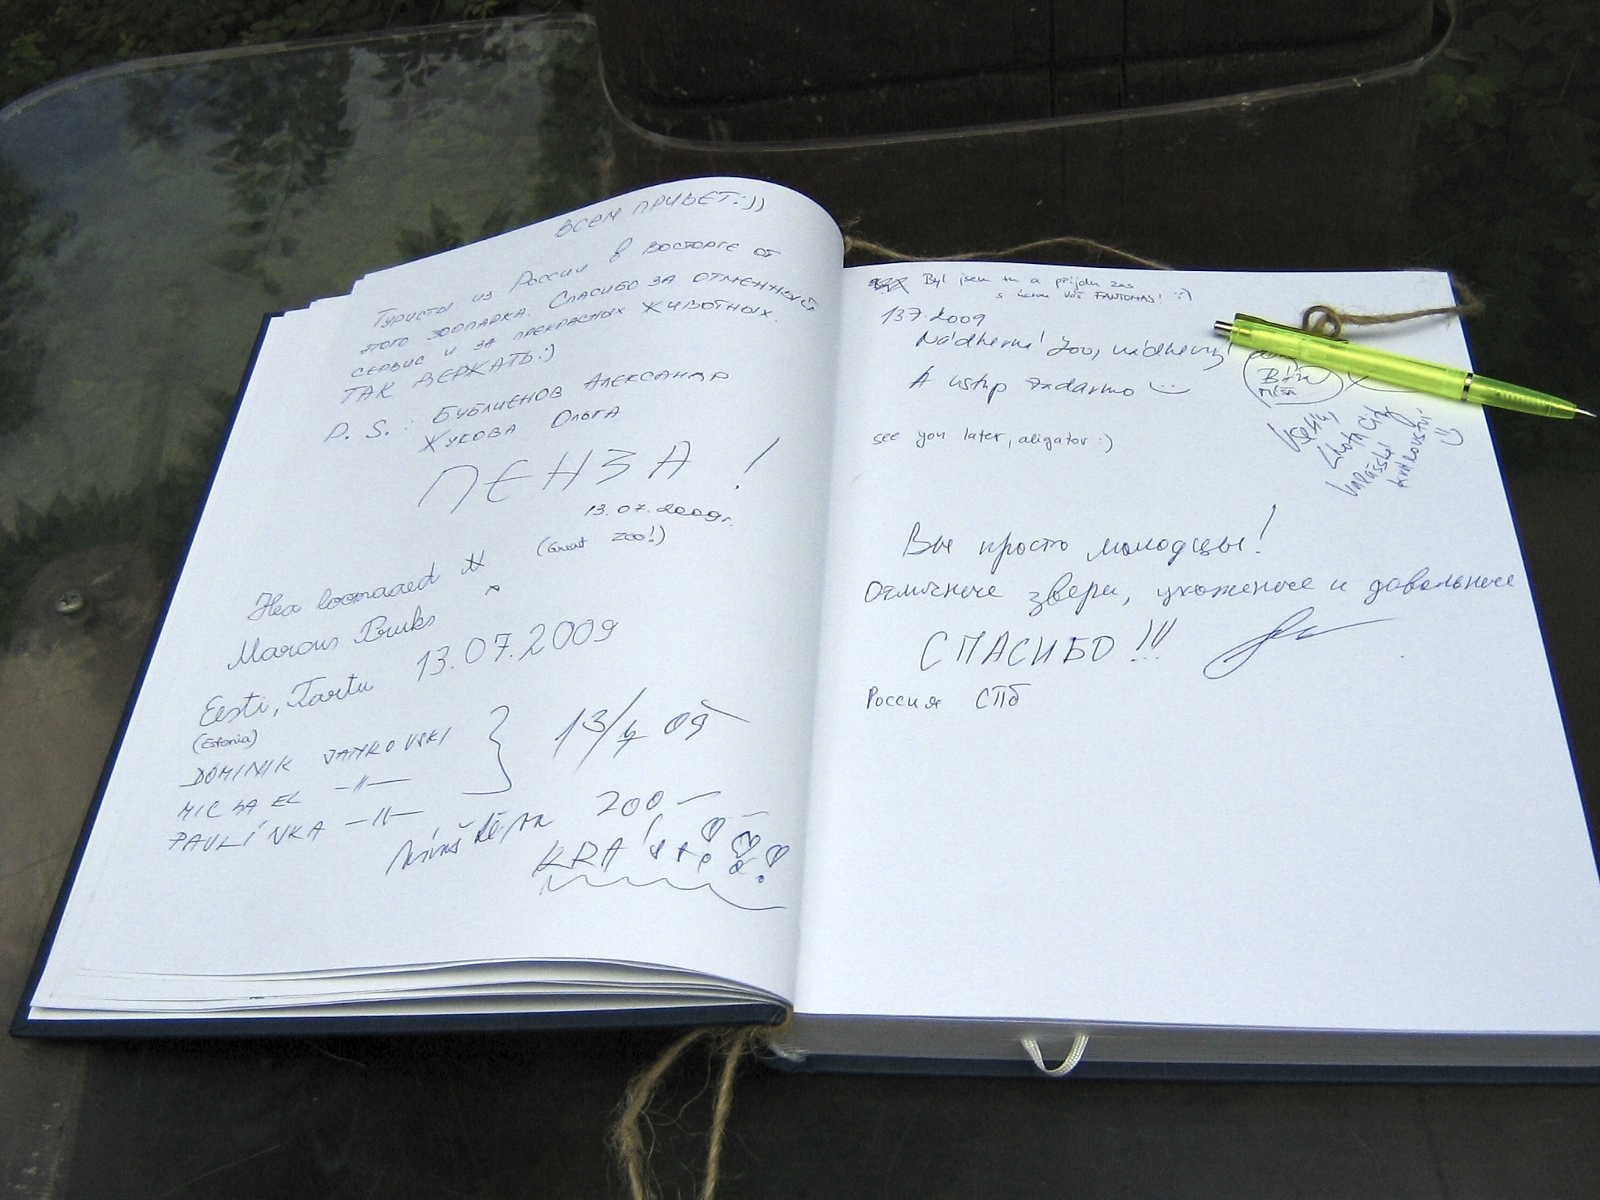 ВСЕМ ПРИВЕТ:))
Туристы из России в восторге от
этого зоопарка. Спасибо за отменный
сервис и за прекрасных животных.
ТАК ДЕРЖАТЬ:)
P. S.: Александр
Жукова Ольга
ПЕНЗА!
13.07.2009г.
(Great ZOO!)
Hea loomaaed
Marcus
Eesti, Tartu 13.07.2009
(Estonia)
DOMINIK JANKOVSKI
MICHAEL —〃—
PAVLÍNKA —〃—
13/7 09
ZOO
Byl jsem tu a přijdu zas
FANTOMAS! :)
13.7.2009
Nádherná Zoo, nádherný
A vstup zadarmo
see you later, aligator :)
Вы просто молодцы!
Отличные звери, ухоженные и довольные
СПАСИБО!!!
Россия СПб